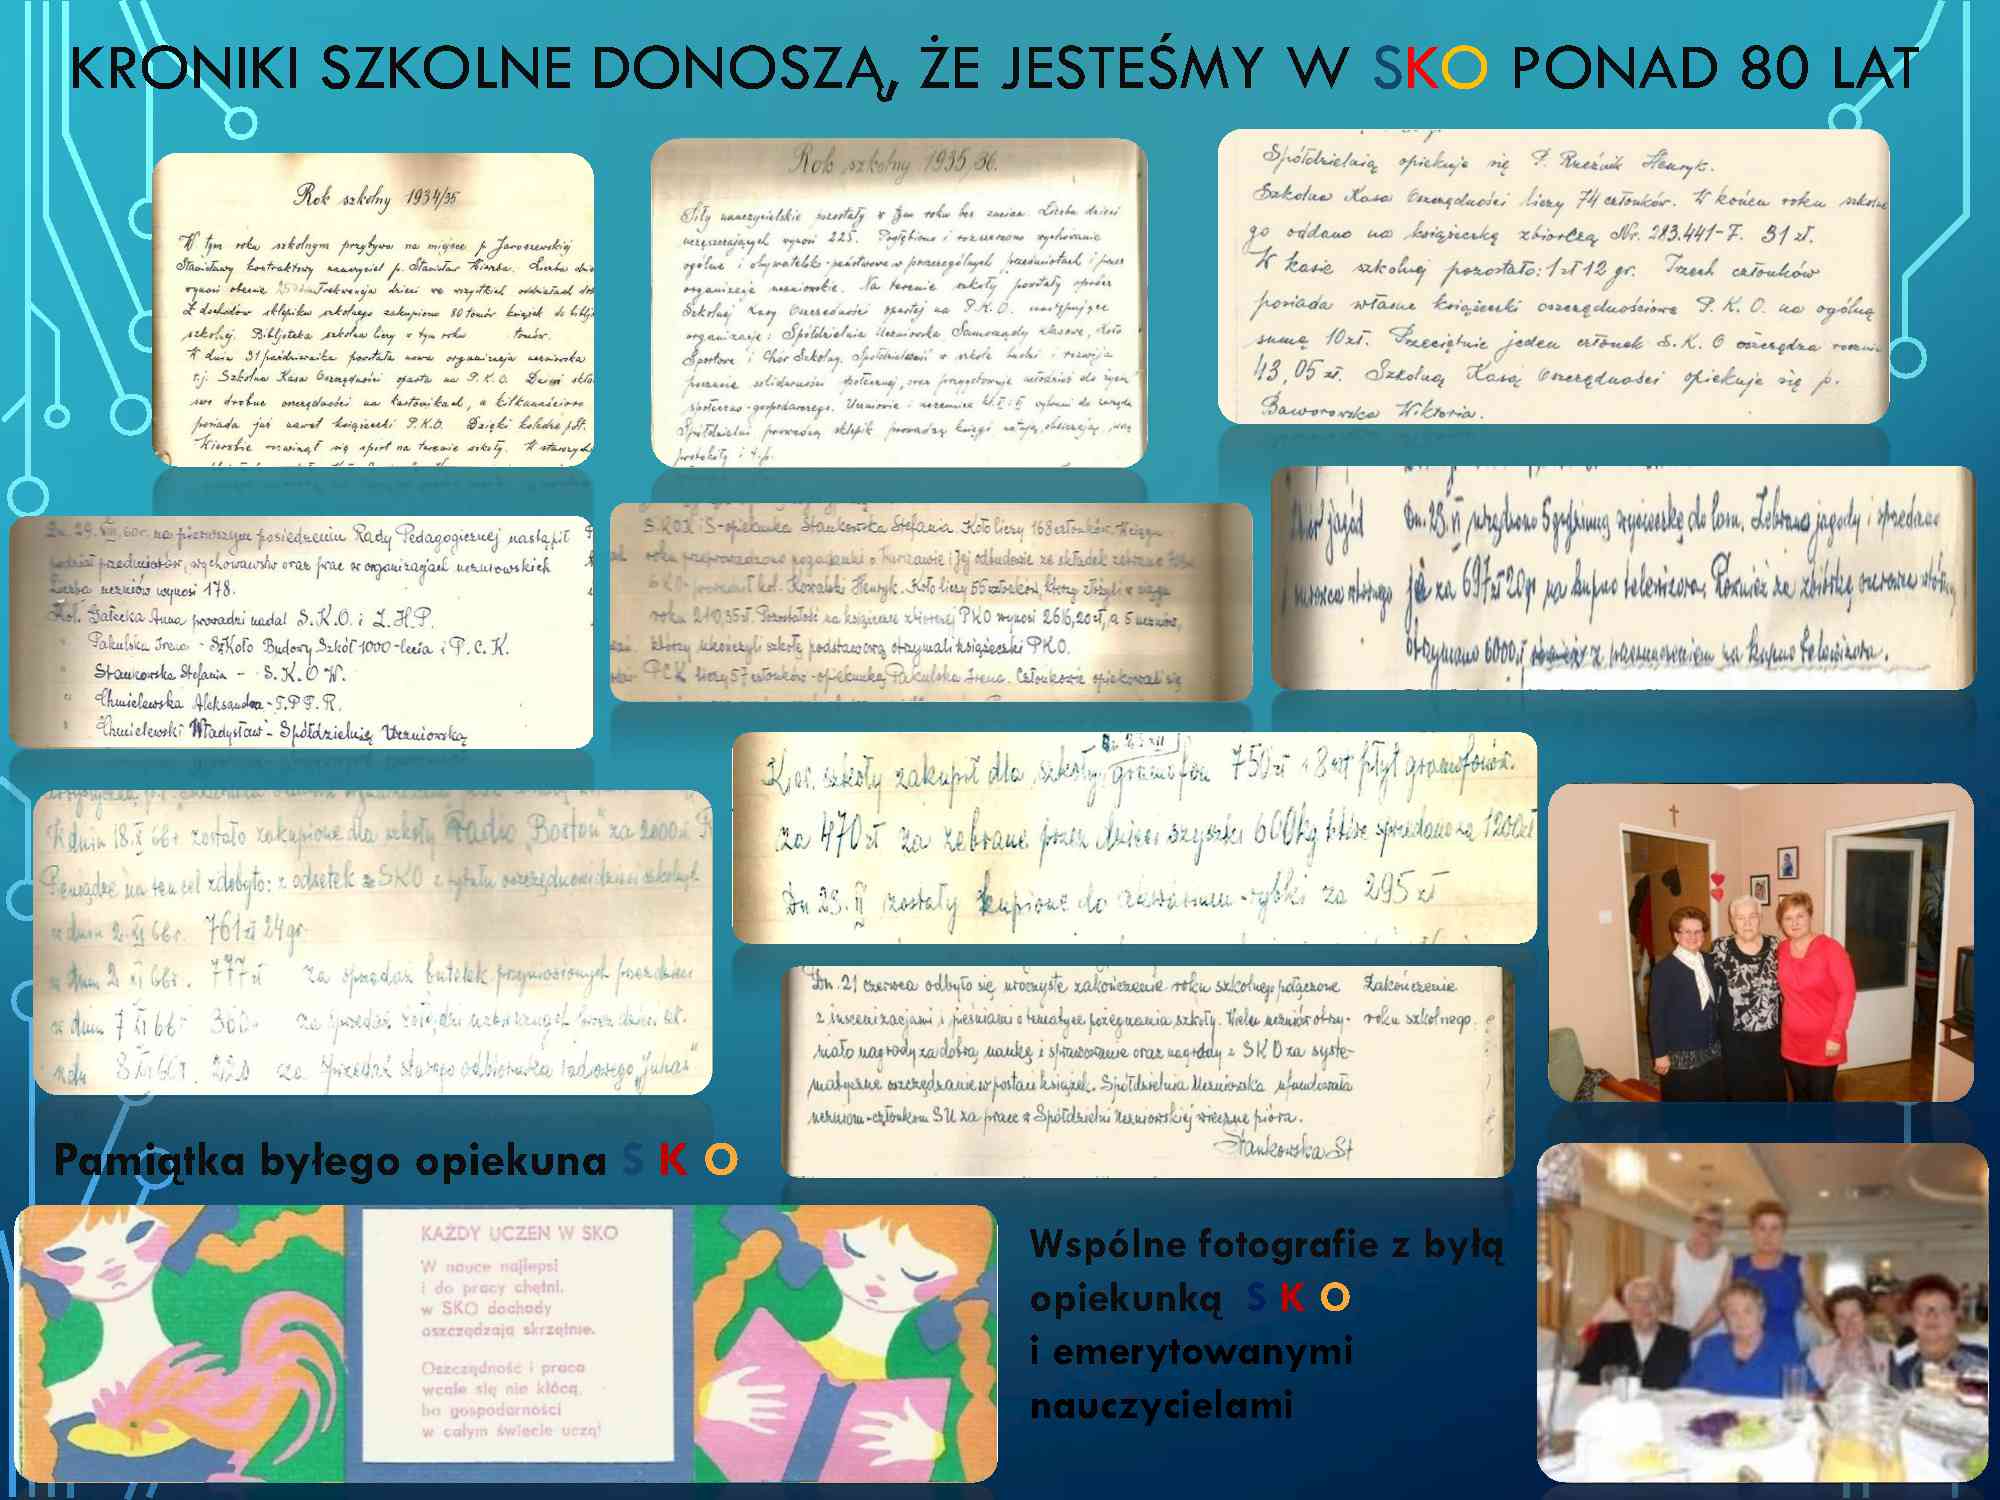 KRONIKI SZKOLNE DONOSZĄ, ŻE JESTEŚMY W SKO PONAD 80 LAT
Rok szkolny 1934/35
W tym roku szkolnym przybywa na miejsce p. Jaroszewskiej
Stanisławy kontraktowy nauczyciel p. Stanisław Kierzba. Liczba
wynosi obecnie frekwencja dzieci we wszystkich oddziałach
Z dochodów sklepiku szkolnego zakupiono 80 tomów książek do
szkolnej. Bibljoteka szkolna liczy w tym roku tomów.
W dniu 31 października powstała nowa organizacja uczniowska
t.j. Szkolna Kasa Oszczędności oparta na P.K.O. Dzieci
swe drobne oszczędności na kartonikach, a kilkanaścioro
posiada już nawet książeczki P.K.O. Dzięki koledze
rozwinął się sport na terenie szkoły. W starszych
Rok szkolny 1935/36.
Siły nauczycielskie pozostały w tym roku bez zmian. Liczba dzieci
uczęszczających wynosi 225. Pogłębiono i rozszerzono wychowanie
ogólne i obywatelsko-państwowe w poszczególnych przedmiotach i przez
organizacje uczniowskie. Na terenie szkoły powstały oprócz
Szkolnej Kasy Oszczędności opartej na P.K.O. następujące
organizacje: Spółdzielnia Uczniowska, Samorządy klasowe, Koło
Sportowe i Chór Szkolny. Spółdzielczość w szkole budzi i rozwija
poczucie solidarności społecznej, oraz przygotowuje młodzież do życia
społeczno-gospodarczego. Uczniowie i uczennice wybrani do zarządu
Spółdzielni prowadzą sklepik prowadzą księgi
protokoły i t.p.
Spółdzielnią opiekuje się P. Rueźnik Henryk.
Szkolna Kasa Oszczędności liczy 74 członków. W końcu roku szkolne
go oddano na książeczkę zbiorczą Nr. 283.441-F. 31 zł.
W kasie szkolnej pozostało: 1 zł 12 gr. Trzech członków
posiada własne książeczki oszczędnościowe P.K.O. na ogólną
sumę 10 zł. Przeciętnie jeden członek S.K.O oszczędza rocznie
43,05 zł. Szkolną Kasą Oszczędności opiekuje się p.
Baworowska Wiktoria.
Dn. 29.VIII.60r. na pierwszym posiedzeniu Rady Pedagogicznej nastąpił
podział przedmiotów, wychowawstw oraz prac w organizacjach uczniowskich
Liczba uczniów wynosi 178.
Kol. Gałecka Anna prowadzi nadal S.K.O. i Z.H.P.
" Pakulska Irena - SzKoło Budowy Szkół 1000-lecia i P.C.K.
" Stankowska Stefania - S.K.O.W.
" Chmielewska Aleksandra - T.P.P.R.
" Chmielewski Władysław - Spółdzielnię Uczniowską
S.K.O.K i S - opiekunka Stankowska Stefania. Koło liczy 168 członków. W ciągu
roku przeprowadzono pogadanki o Warszawie i jej odbudowie ze składek zebrano
SKO - prowadził kol. Kowalski Henryk. Koło liczy 55 członków, którzy złożyli w ciągu
roku 210,35 zł. Pozostałość na książeczce zbiorczej PKO wynosi 2616,20 zł, a 5 uczniów,
którzy ukończyli szkołę podstawową otrzymali książeczki PKO.
PCK liczy 57 członków - opiekunka Pakulska Irena. Członkowie opiekowali się
Zbiór jagód
Dn. 23.VI urządzono 5 godzinną wycieczkę do lasu. Zebrano jagody i sprzedano
je za 697 zł 20 gr na kupno telewizora. Również za zbiórkę surowca wtórnego
surowca wtórnego
otrzymano 6000 zł z przeznaczeniem na kupno telewizora.
Kier. szkoły zakupił dla szkoły gramofon 750 zł i 8 szt płyt gramofonow.
za 470 zł za zebrane przez dzieci szyszki 600 kg które sprzedano za 1200 zł
Dn 23.II zostały kupione do akwarium - rybki za 295 zł
W dniu 18.X 66r zostało zakupione dla szkoły Radio "Boston" za 2000 zł
Pieniądze na ten cel zdobyto: z odsetek z SKO z tytułu oszczędności dzieci szkolnych
w dniu 2.XI 66r. 761 zł 24 gr
w dniu 2 XI 66r. 777 zł za sprzedaż butelek przyniesionych przez dzieci
w dniu 7 XI 66r 360,- za sprzedaż żołędzi uzbieranych przez dzieci szk.
8 XI 66r. 220 za sprzedaż starego odbiornika radiowego "Juhas"
Dn. 21 czerwca odbyło się uroczyste zakończenie roku szkolnego połączone
z inscenizacjami i pieśniami o tematyce pożegnania szkoły. Wielu uczniów otrzy-
mało nagrody za dobrą naukę i sprawowanie oraz nagrody z SKO za syste-
matyczne oszczędzanie w postaci książek. Spółdzielnia Uczniowska ufundowała
uczniom-członkom SU za pracę w Spółdzielni Uczniowskiej wieczne pióra.
Stankowska St
Zakończenie
roku szkolnego.
Pamiątka byłego opiekuna S K O
KAŻDY UCZEŃ W SKO
W nauce najlepsi
i do pracy chętni,
w SKO dochody
oszczędzają skrzętnie.
Oszczędność i praca
wcale się nie kłócą,
bo gospodarności
w całym świecie uczą!
Wspólne fotografie z byłą
opiekunką S K O
i emerytowanymi
nauczycielami